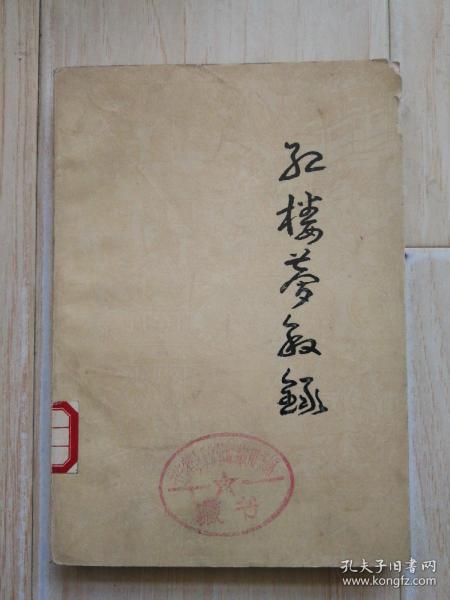 红楼梦叙录
藏书
孔夫子旧书网
www.kongfz.com